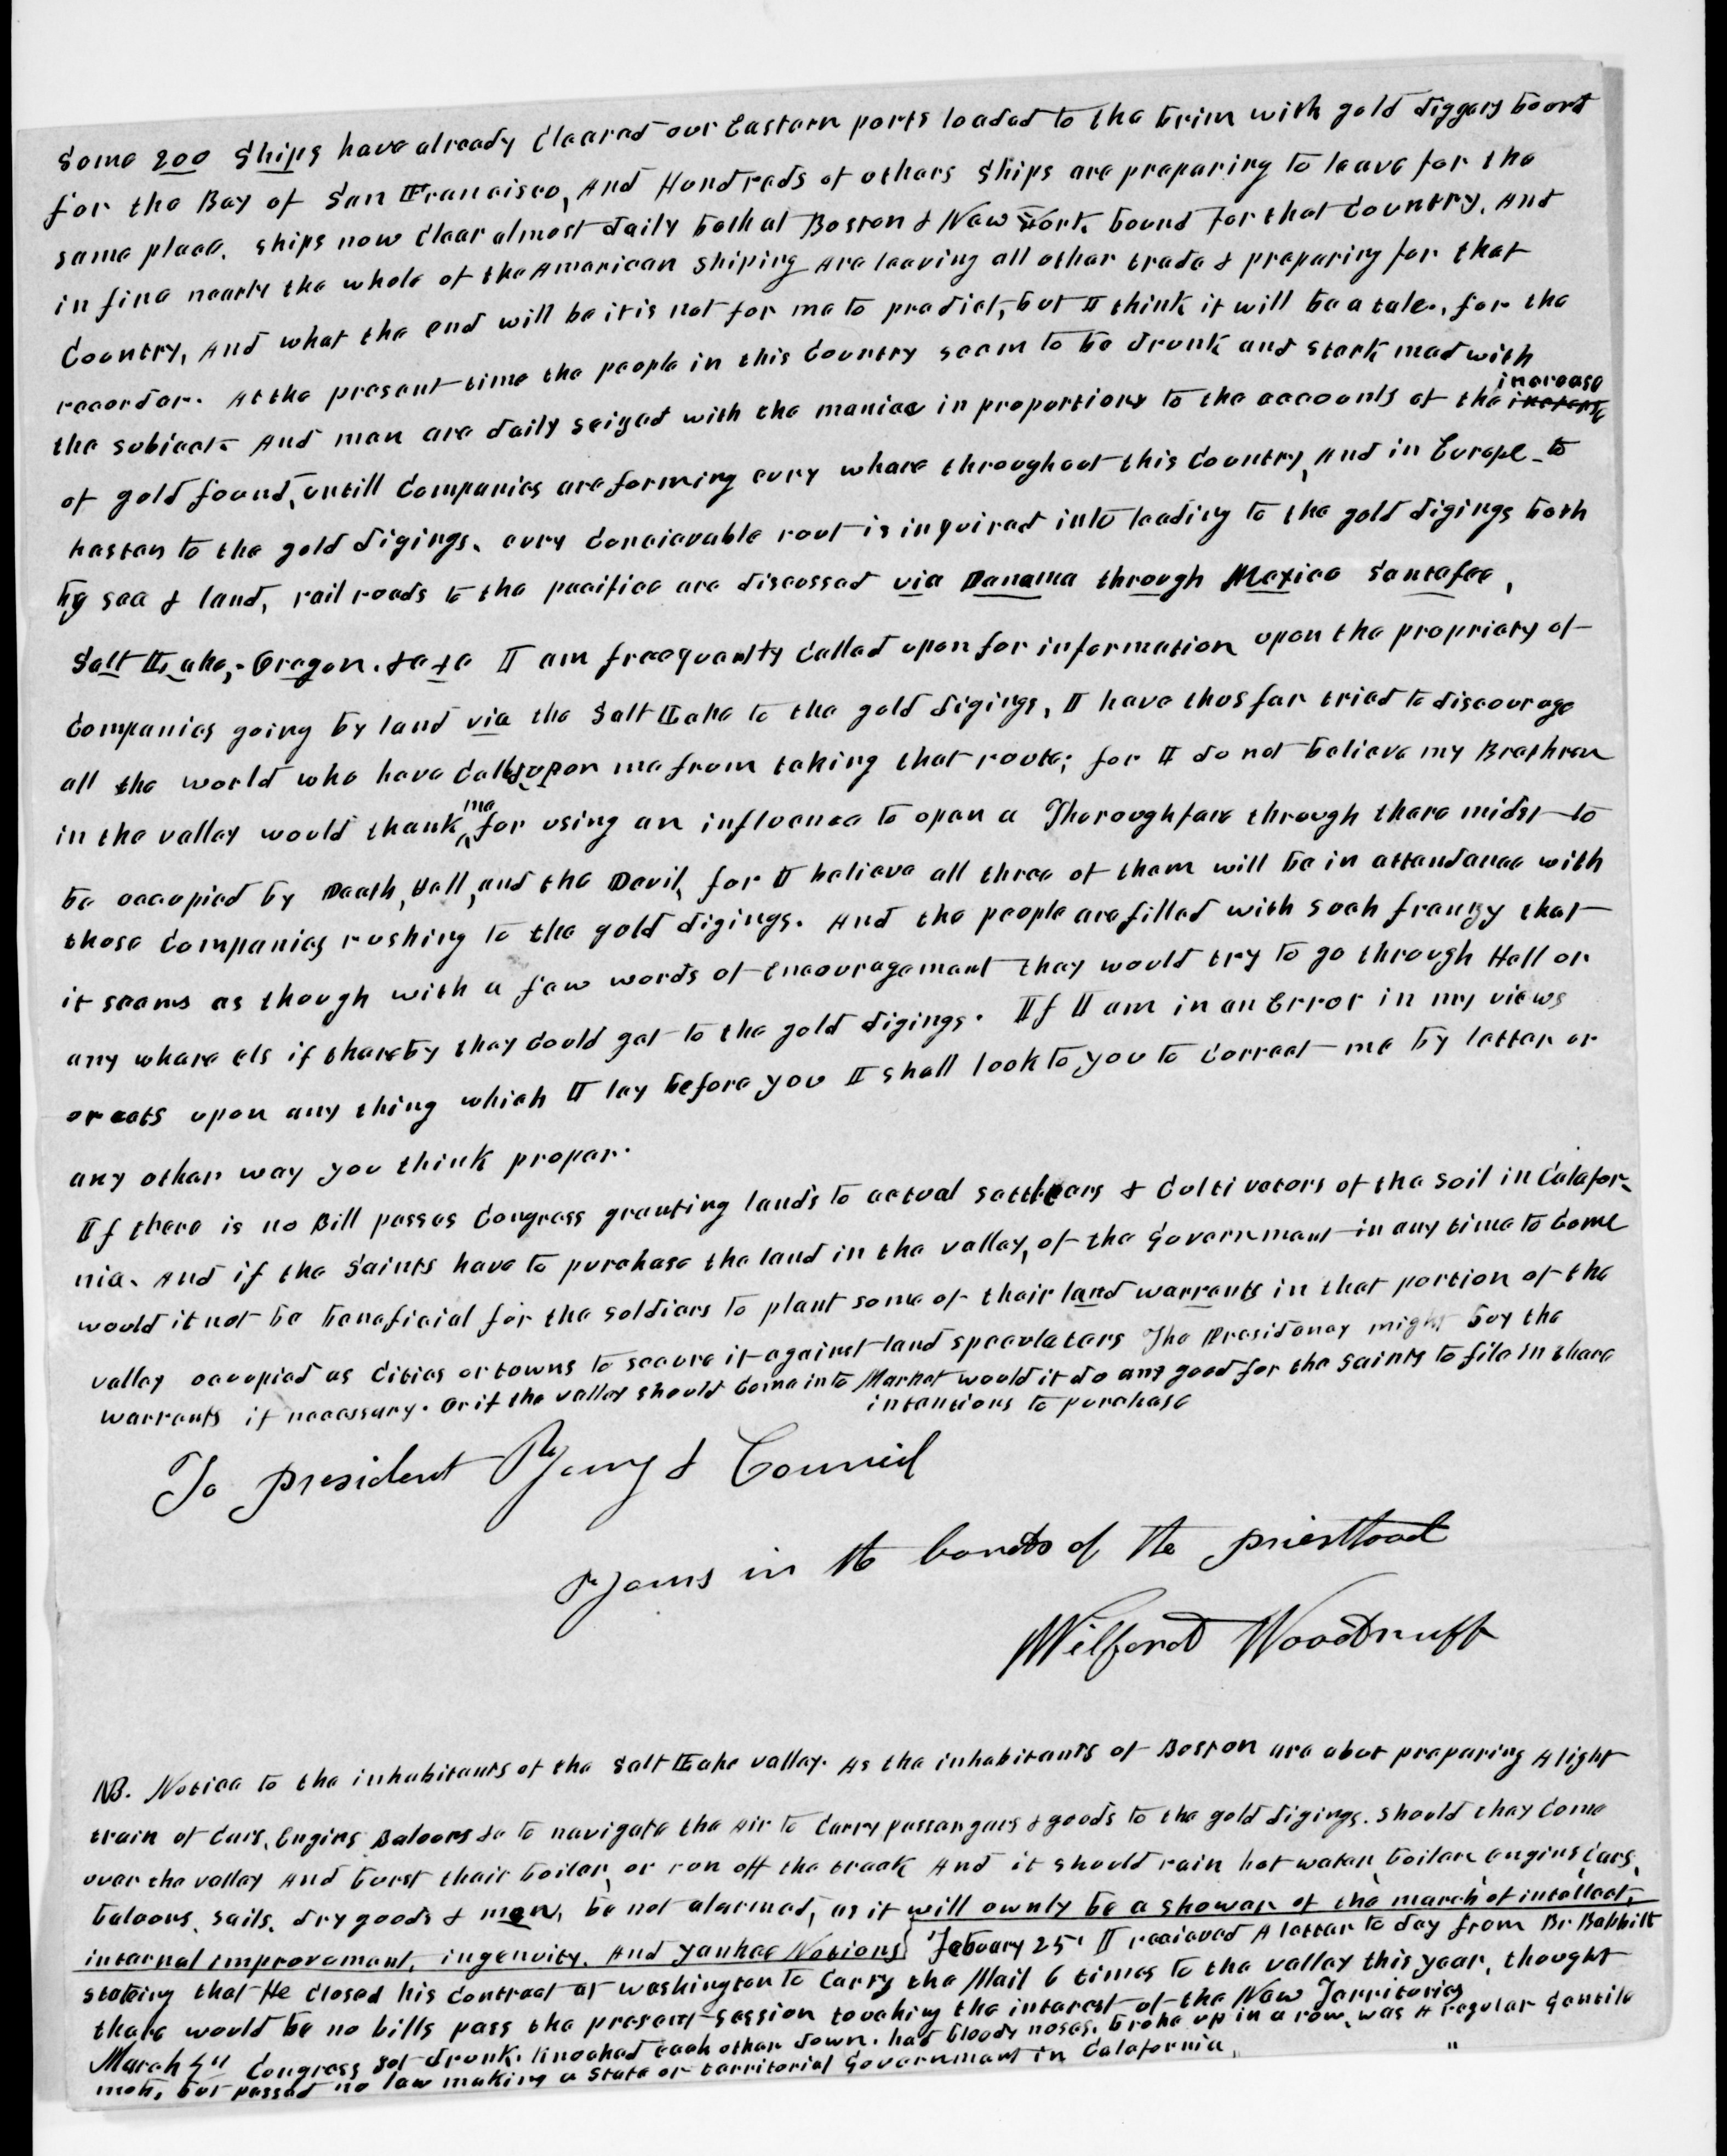 Some 200 Ships have already Cleared our Eastern ports loaded to the brim with gold diggers bound
for the Bay of San Francisco, And Hundreds of others Ships are preparing to leave for the
same place. Ships now Clear almost daily both at Boston & New York bound for that Country. And
in fine nearly the whole of the American Shiping are leaving all other trade & preparing for that
Country, And what the end will be it is not for me to predict, but I think it will be a tale, for the
recorder. At the present time the people in this Country seem to be drunk and stark mad with
the subject And men are daily seized with the maniac in proportions to the accounts of the increase
of gold found, untill Companies are forming evry whare throughout this Country, And in Europe to
hasten to the gold digings. evry Conceivable rout is inquired into leading to the gold digings both
by sea & land, rail roads to the pacific are discussed via Panama through Mexico Santafee,
Salt Lake, Oregon. &c &c I am freequently Called upon for information upon the propriety of
Companies going by land via the Salt Lake to the gold digings, I have thus far tried to discourage
all the world who have Called upon me from taking that route; for I do not believe my Brethren
in the valley would thank me for using an influence to open a Thoroughfare through there midst to
be occupied by Death, Hell, and the Devil, for I believe all three of them will be in attendance with
those Companies rushing to the gold digings. And the people are filled with such frenzy that
it seems as though with a few words of encouragement they would try to go through Hell or
any whare els if thareby they Could get to the gold digings. If I am in an Error in my views
or acts upon any thing which I lay before you I shall look to you to Correct me by letter or
any other way you think proper.
If there is no Bill passes Congress granting lands to actual settlears & Cultivators of the soil in Calafor-
nia. And if the Saints have to purchase the land in the valley, of the Government in any time to Come
would it not be beneficial for the soldiers to plant some of their land warrants in that portion of the
valley occupied as Cities or towns to secure it against land speculators The Presidency might buy the
warrants if necessary. Or if the valley should Come into Market would it do any good for the Saints to file in thare
intentions to purchase
To president Young & Council
Yours in the bonds of the priesthood
Wilford Woodruff
NB. Notice to the inhabitants of the Salt Lake valley. As the inhabitants of Boston are about preparing A light
train of Cars, Engins Baloons &c to navigate the Air to Carry passengers & goods to the gold digings. Should they Come
over the valley And burst their boiler, or run off the track And it should rain hot water, boilers, engins, Cars,
baloons, sails, dry goods & men, be not alarmed, as it will ownly be a shower of the march of intellect,
internal improvement, ingenuity, And yankee Notions] Febuary 25th I recieved A letter to day from Br Babbitt
stateing that He Closed his Contract at washington to Carry the Mail 6 times to the valley this year, thought
there would be no bills pass the present session touching the interest of the New Territories
March 5th Congress got drunk. knocked each other down. had bloody noses. broke up in a row, was A regular Gentile
mob, but passed no law making a State or territorial Government in Calafornia "